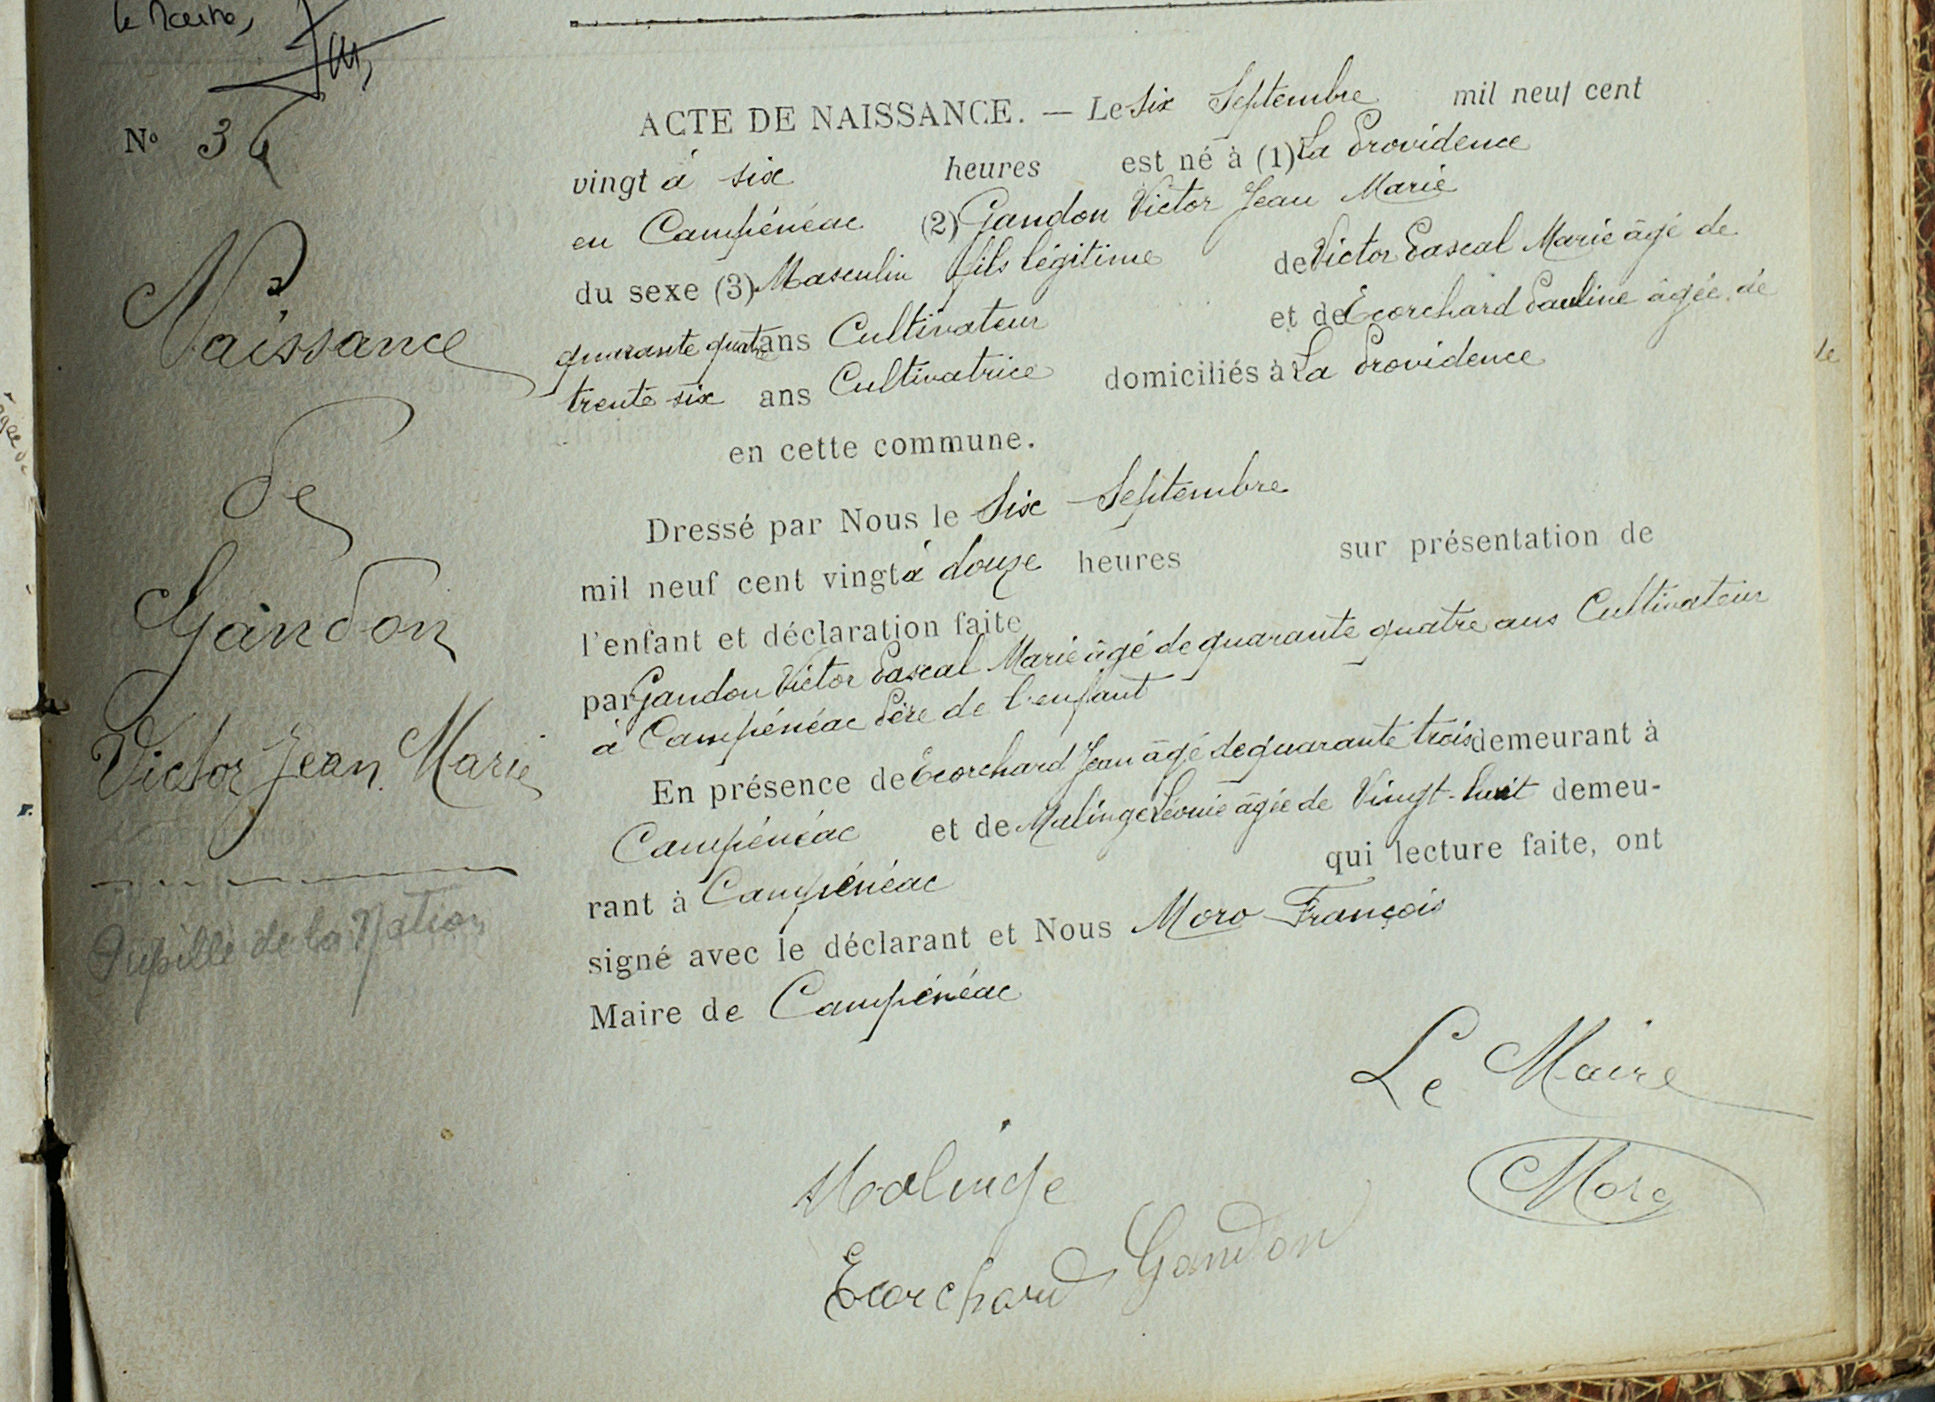 le Maire,
N° 34
Naissance
de
Gandon
Victor Jean Marie
Pupille de la Nation
ACTE DE NAISSANCE. — Le six Septembre mil neuf cent
vingt à six heures est né à (1) La Providence
en Campénéac (2) Gandon Victor Jean Marie
du sexe (3) Masculin fils légitime de Victor Pascal Marie âgé de
quarante quatre ans Cultivateur et de Ecorchard Pauline âgée de
trente six ans Cultivatrice domiciliés à La Providence
en cette commune.
Dressé par Nous le Six Septembre
mil neuf cent vingt à douze heures sur présentation de
l'enfant et déclaration faite
par Gandon Victor Pascal Marie âgé de quarante quatre ans Cultivateur
à Campénéac Père de l'enfant
En présence de Ecorchard Jean âgé de quarante trois demeurant à
Campénéac et de Malinge Léonie âgée de Vingt-huit demeu-
rant à Campénéac qui lecture faite, ont
signé avec le déclarant et Nous Moro François
Maire de Campénéac
Le Maire
Malinge
Moro
Ecorchard Gandon